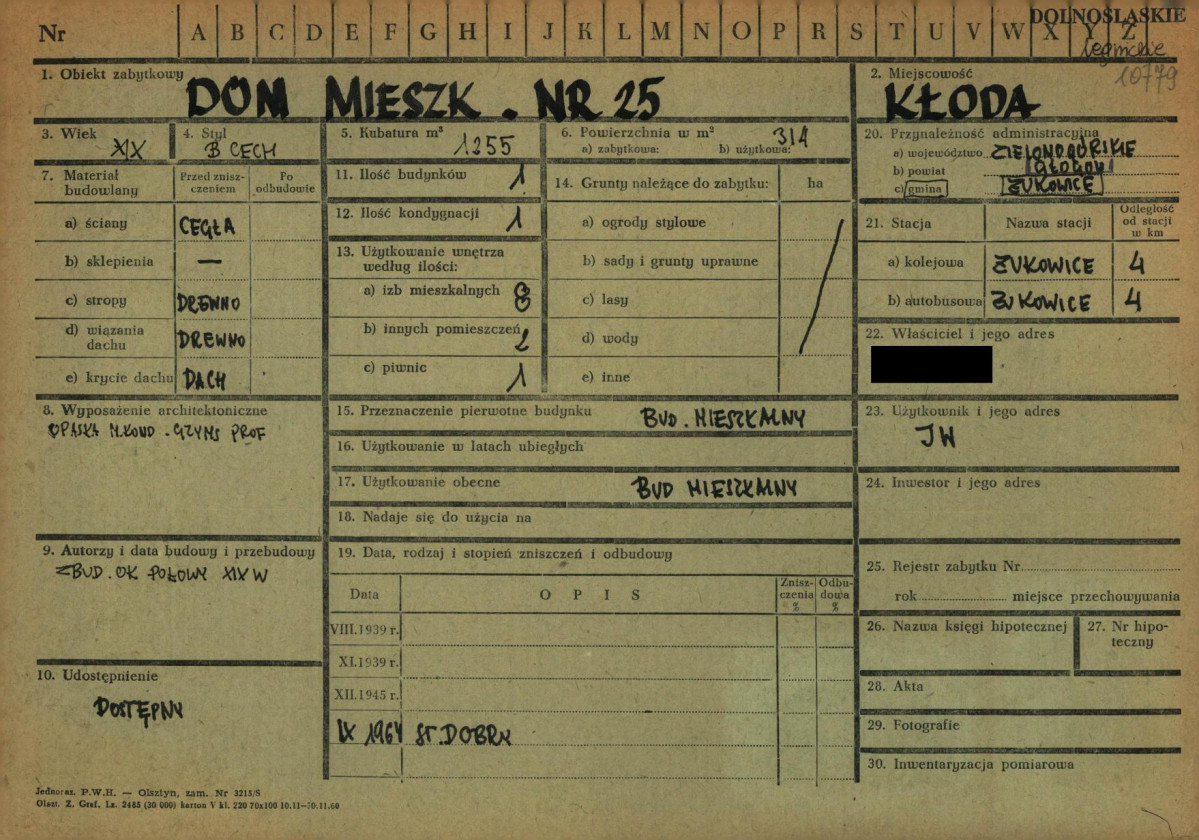 Nr A B C D E F G H I J K L M N O P R S T U V W X Y Z
DOLNOŚLĄSKIE
legnickie
10779
1. Obiekt zabytkowy
DOM MIESZK. NR 25
2. Miejscowość
KŁODA
3. Wiek
XIX
4. Styl
B CECH
5. Kubatura m³
1255
6. Powierzchnia w m²
a) zabytkowa: b) użytkowa:
314
20. Przynależność administracyjna
a) województwo ZIELONOGÓRSKIE
b) powiat GŁOGÓW
c) gmina ŻUKOWICE
7. Materiał budowlany
Przed zniszczeniem
Po odbudowie
a) ściany CEGŁA
b) sklepienia —
c) stropy DREWNO
d) wiązania dachu DREWNO
e) krycie dachu DACH
11. Ilość budynków 1
12. Ilość kondygnacji 1
13. Użytkowanie wnętrza
według ilości:
a) izb mieszkalnych 8
b) innych pomieszczeń 2
c) piwnic 1
14. Grunty należące do zabytku: ha
a) ogrody stylowe
b) sady i grunty uprawne
c) lasy
d) wody
e) inne
21. Stacja Nazwa stacji Odległość od stacji w km
a) kolejowa ŻUKOWICE 4
b) autobusowa ŻUKOWICE 4
22. Właściciel i jego adres
8. Wyposażenie architektoniczne
OPASKA M.KOND. GZYMS PROF
15. Przeznaczenie pierwotne budynku BUD. MIESZKALNY
16. Użytkowanie w latach ubiegłych
17. Użytkowanie obecne BUD MIESZKALNY
18. Nadaje się do użycia na
23. Użytkownik i jego adres
JW
24. Inwestor i jego adres
9. Autorzy i data budowy i przebudowy
ZBUD. OK POŁOWY XIX W
19. Data, rodzaj i stopień zniszczeń i odbudowy
Data O P I S Zniszczenia % Odbudowa %
VIII.1939 r.
XI.1939 r.
XII.1945 r.
IX 1964 ST. DOBRY
25. Rejestr zabytku Nr
rok miejsce przechowywania
26. Nazwa księgi hipotecznej
27. Nr hipoteczny
10. Udostępnienie
DOSTĘPNY
28. Akta
29. Fotografie
30. Inwentaryzacja pomiarowa
Jednoraz. P.W.H. — Olsztyn, zam. Nr 3215/S
Olszt. Z. Graf. Lz. 2485 (30 000) karton V kl. 220 70x100 10.11—30.11.60